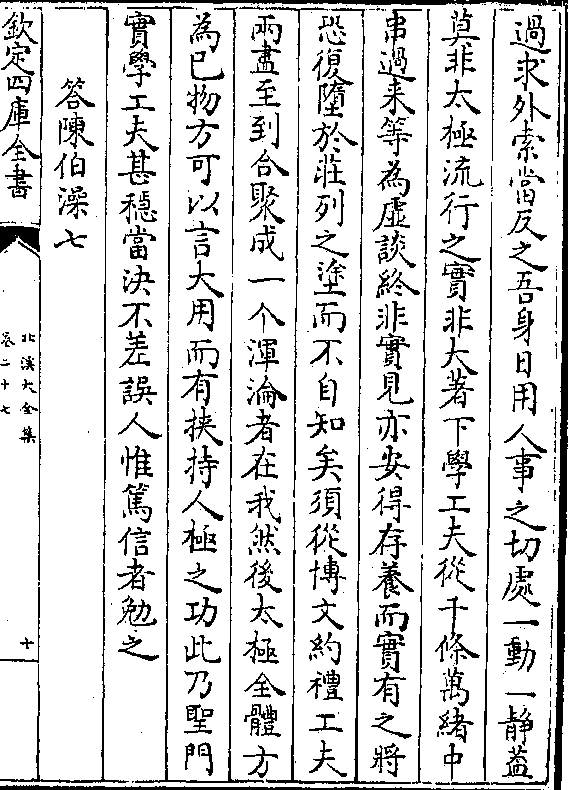 過求外索當反之吾身日用人事之切處一動一靜葢
莫非太極流行之實非大著下學工夫從千條萬緒中
串過来等為虚談終非實見亦安得存養而實有之將
恐復墮於莊列之塗而不自知矣須從博文約禮工夫
兩盡至到合聚成一个渾淪者在我然後太極全體方
為已物方可以言大用而有挾持人極之功此乃聖門
實學工夫甚穩當決不差誤人惟篤信者勉之
答陳伯澡七
欽定四庫全書
北溪大全集
卷二十七
十